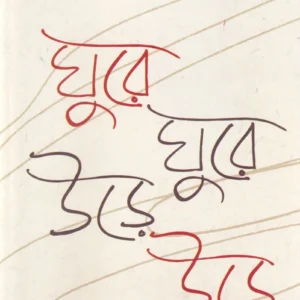 ঘুরে
ঘুরে
উড়ে
উড়ে